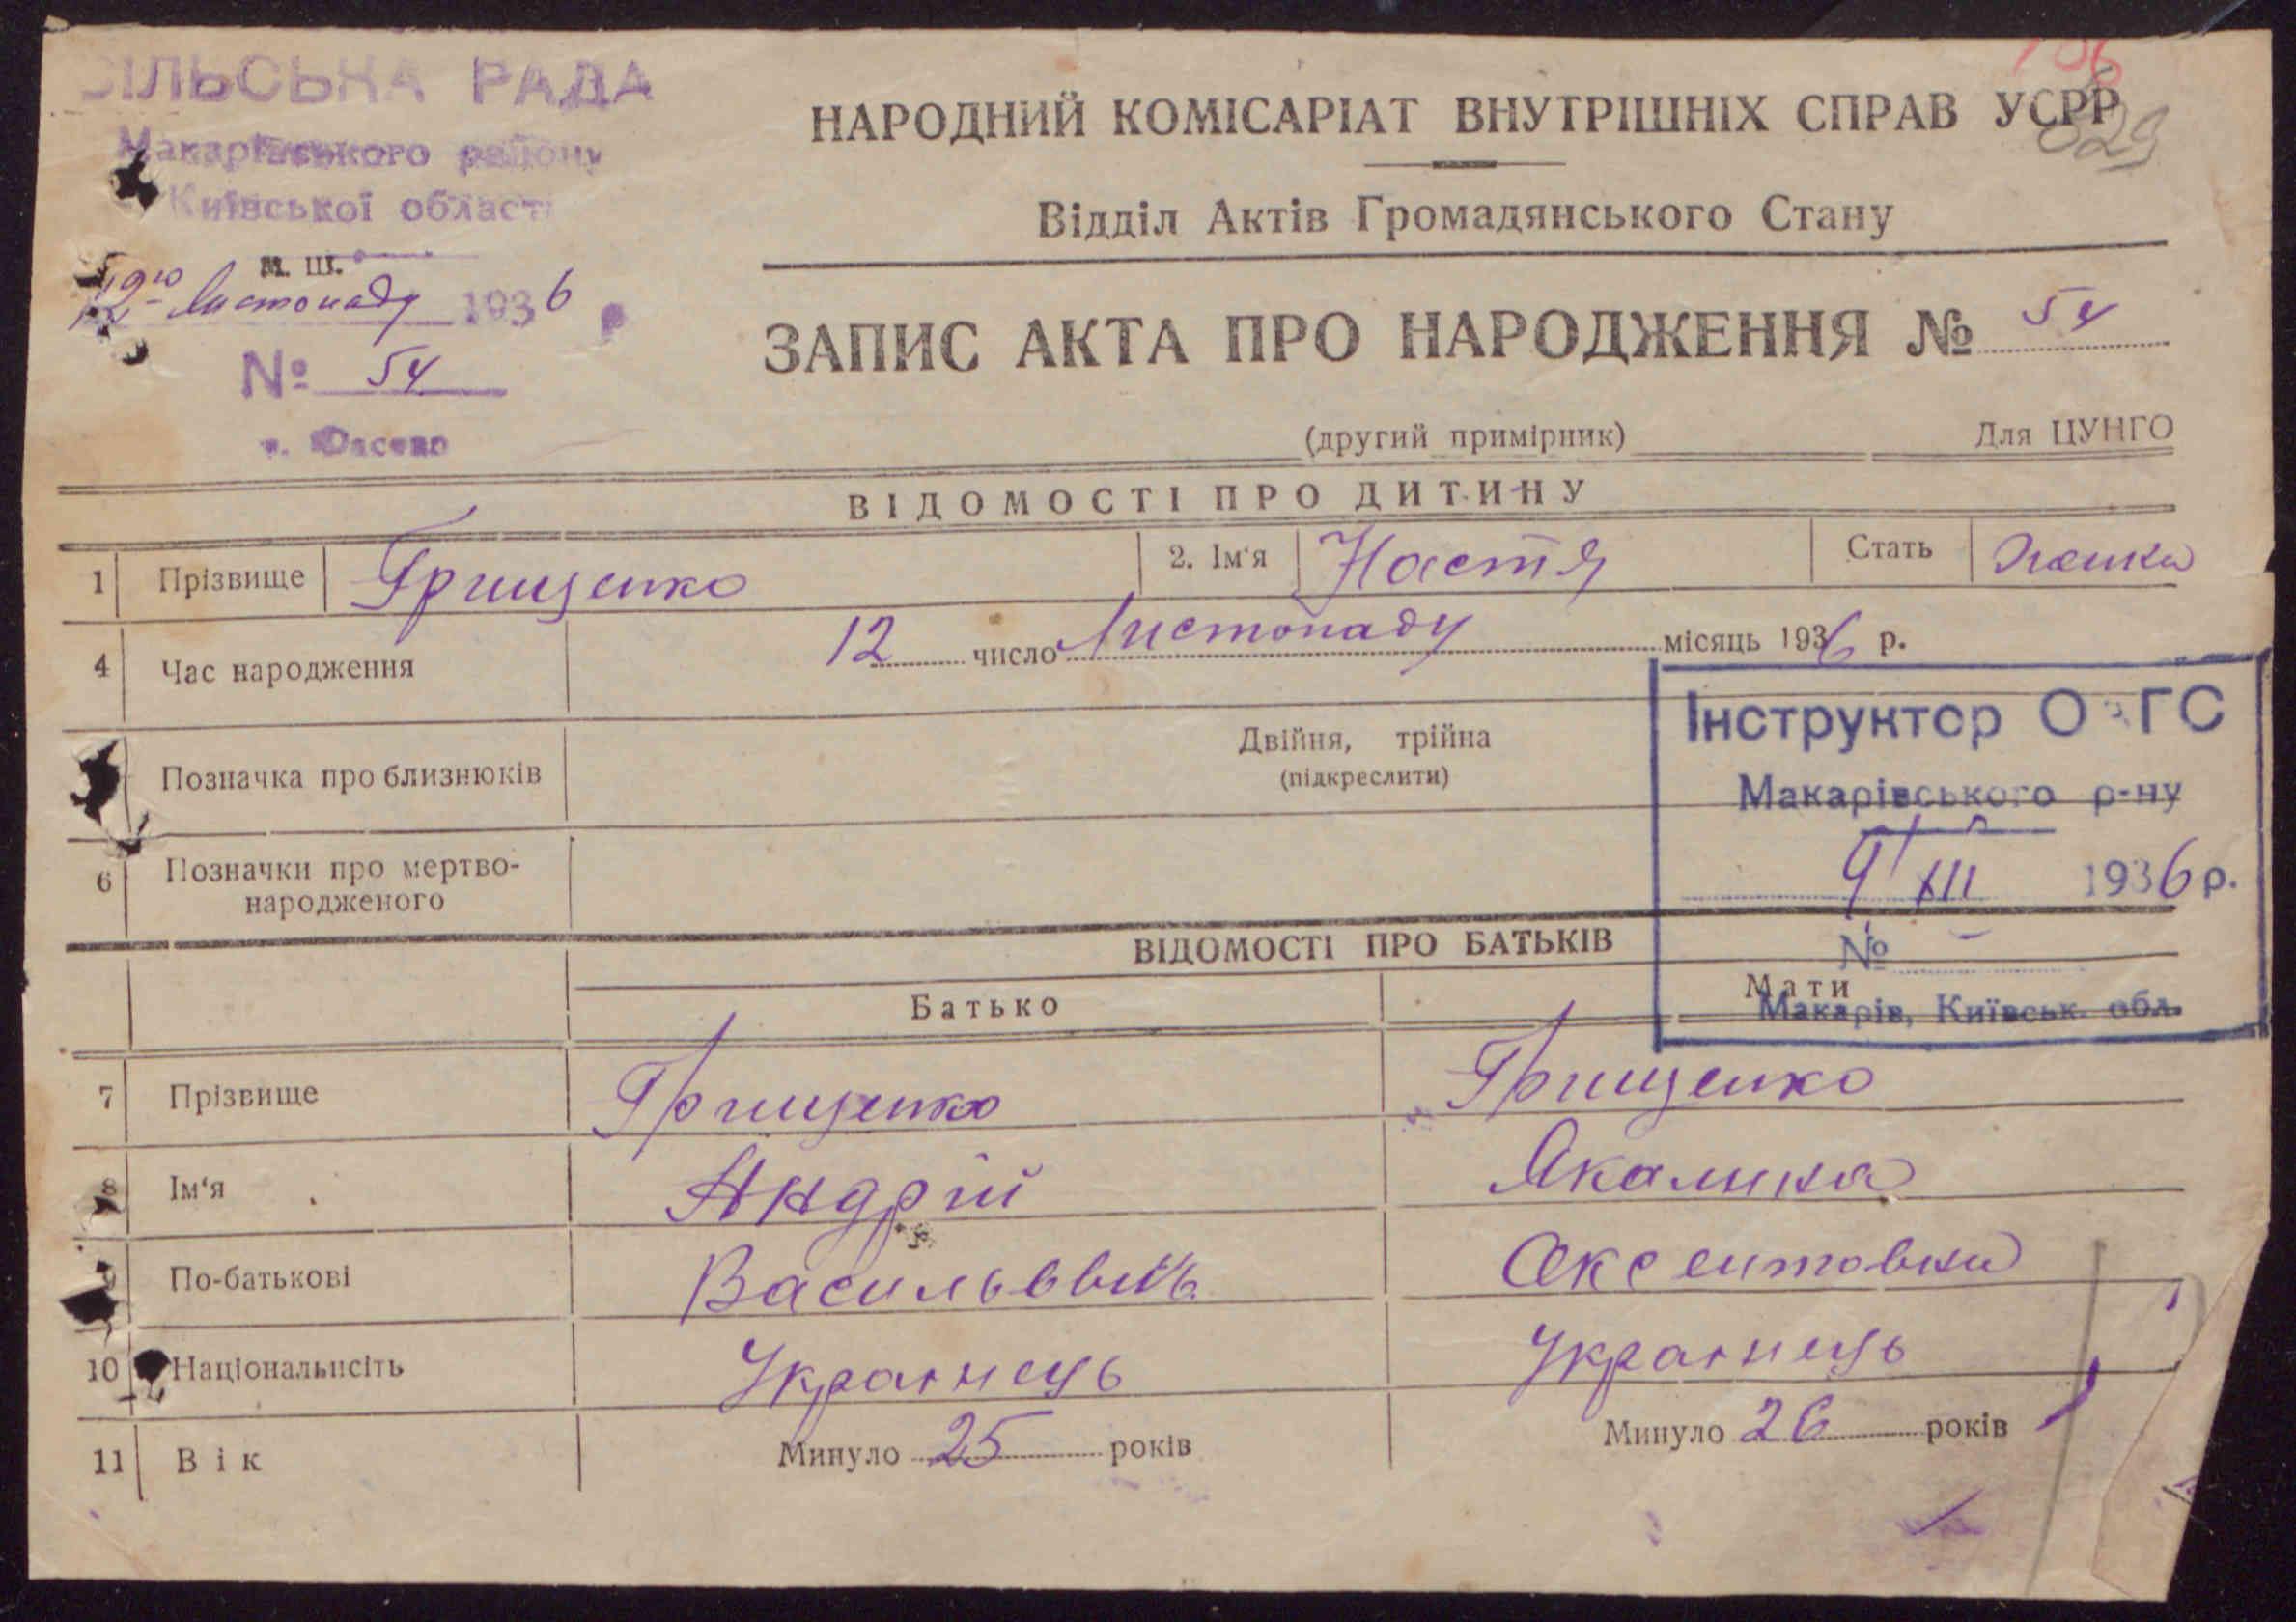 СІЛЬСЬКА РАДА
Макарівського району
Київської області
М. Ш.
Листопаду 1936
№ 54
НАРОДНИЙ КОМІСАРІАТ ВНУТРІШНІХ СПРАВ УСРР
106
629
Відділ Актів Громадянського Стану
ЗАПИС АКТА ПРО НАРОДЖЕННЯ № 54
(другий примірник) Для ЦУНГО
ВІДОМОСТІ ПРО ДИТИНУ
1 Прізвище Грищенко 2. Ім'я Настя Стать
4 Час народження 12 число Листопаду місяць 1936 р.
Позначка про близнюків Двійня, трійна
(підкреслити)
6 Позначки про мертво-
народженого
Інструктор О ГС
Макарівського р-ну
9 XII 1936 р.
№ -
Макарів, Київськ. обл.
ВІДОМОСТІ ПРО БАТЬКІВ
Батько Мати
7 Прізвище Грищенко Грищенко
8 Ім'я Андрій Якалина
9 По-батькові Васильвич Аксентовна
10 Національнсіть Украінець Украінець
11 Вік Минуло 25 років Минуло 26 років